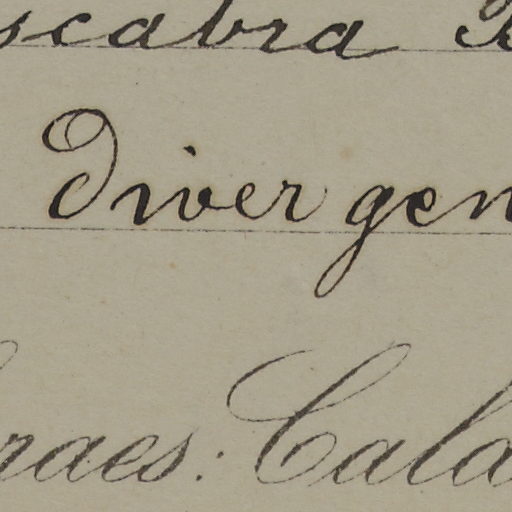 scabra R
Divergen
raes: Cala